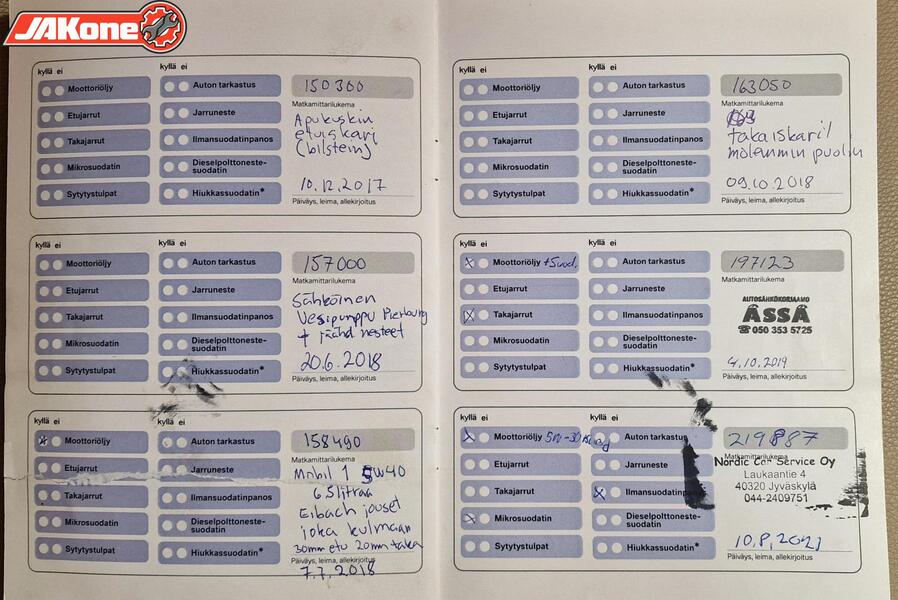 JAKone
kyllä ei
kyllä ei
Moottoriöljy
Auton tarkastus
150360
Matkamittarilukema
Etujarrut
Jarruneste
Apukuskin
etuiskari
(bilstein)
Takajarrut
Ilmansuodatinpanos
Mikrosuodatin
Dieselpolttoneste-
suodatin
10.12.2017
Sytytystulpat
Hiukkassuodatin*
Päiväys, leima, allekirjoitus
kyllä ei
kyllä ei
Moottoriöljy
Auton tarkastus
157000
Matkamittarilukema
Etujarrut
Jarruneste
Sähköinen
Vesipumppu Pierburg
+ jäähd nesteet
Takajarrut
Ilmansuodatinpanos
Mikrosuodatin
Dieselpolttoneste-
suodatin
20.6.2018
Sytytystulpat
Hiukkassuodatin*
Päiväys, leima, allekirjoitus
kyllä ei
kyllä ei
Moottoriöljy
Auton tarkastus
158490
Matkamittarilukema
Etujarrut
Jarruneste
Mobil 1 5W40
6.5 litraa
Eibach jouset
joka kulmaan
30mm etu 20mm taka
Takajarrut
Ilmansuodatinpanos
Mikrosuodatin
Dieselpolttoneste-
suodatin
Sytytystulpat
Hiukkassuodatin*
Päiväys, leima, allekirjoitus
7.7.2018
kyllä ei
kyllä ei
Moottoriöljy
Auton tarkastus
163050
Matkamittarilukema
Etujarrut
Jarruneste
takaiskarit
molemmin puolin
Takajarrut
Ilmansuodatinpanos
Mikrosuodatin
Dieselpolttoneste-
suodatin
09.10.2018
Sytytystulpat
Hiukkassuodatin*
Päiväys, leima, allekirjoitus
kyllä ei
kyllä ei
Moottoriöljy +suod.
Auton tarkastus
197123
Matkamittarilukema
Etujarrut
Jarruneste
AUTOSÄHKÖKORJAAMO
ÄSSÄ
☎050 353 5725
Takajarrut
Ilmansuodatinpanos
Mikrosuodatin
Dieselpolttoneste-
suodatin
4.10.2019
Sytytystulpat
Hiukkassuodatin*
Päiväys, leima, allekirjoitus
kyllä ei
kyllä ei
Moottoriöljy 5W-30
Auton tarkastus
219887
Matkamittarilukema
Etujarrut
Jarruneste
Nordic Car Service Oy
Laukaantie 4
40320 Jyväskylä
044-2409751
Takajarrut
Ilmansuodatinpanos
Mikrosuodatin
Dieselpolttoneste-
suodatin
10.8.2021
Sytytystulpat
Hiukkassuodatin*
Päiväys, leima, allekirjoitus